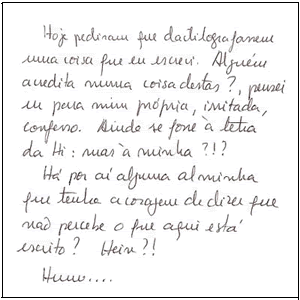 Hoje pediram que dactilografassem
uma coisa que eu escrevi. Alguém
acredita numa coisa destas?, pensei
eu para mim própria, irritada,
confesso. Ainda se fosse à letra
da Hi: mas à minha?!?
Há por aí alguma alminha
que tenha a coragem de dizer que
não percebe o que aqui está
escrito? Hein?!
Humm....